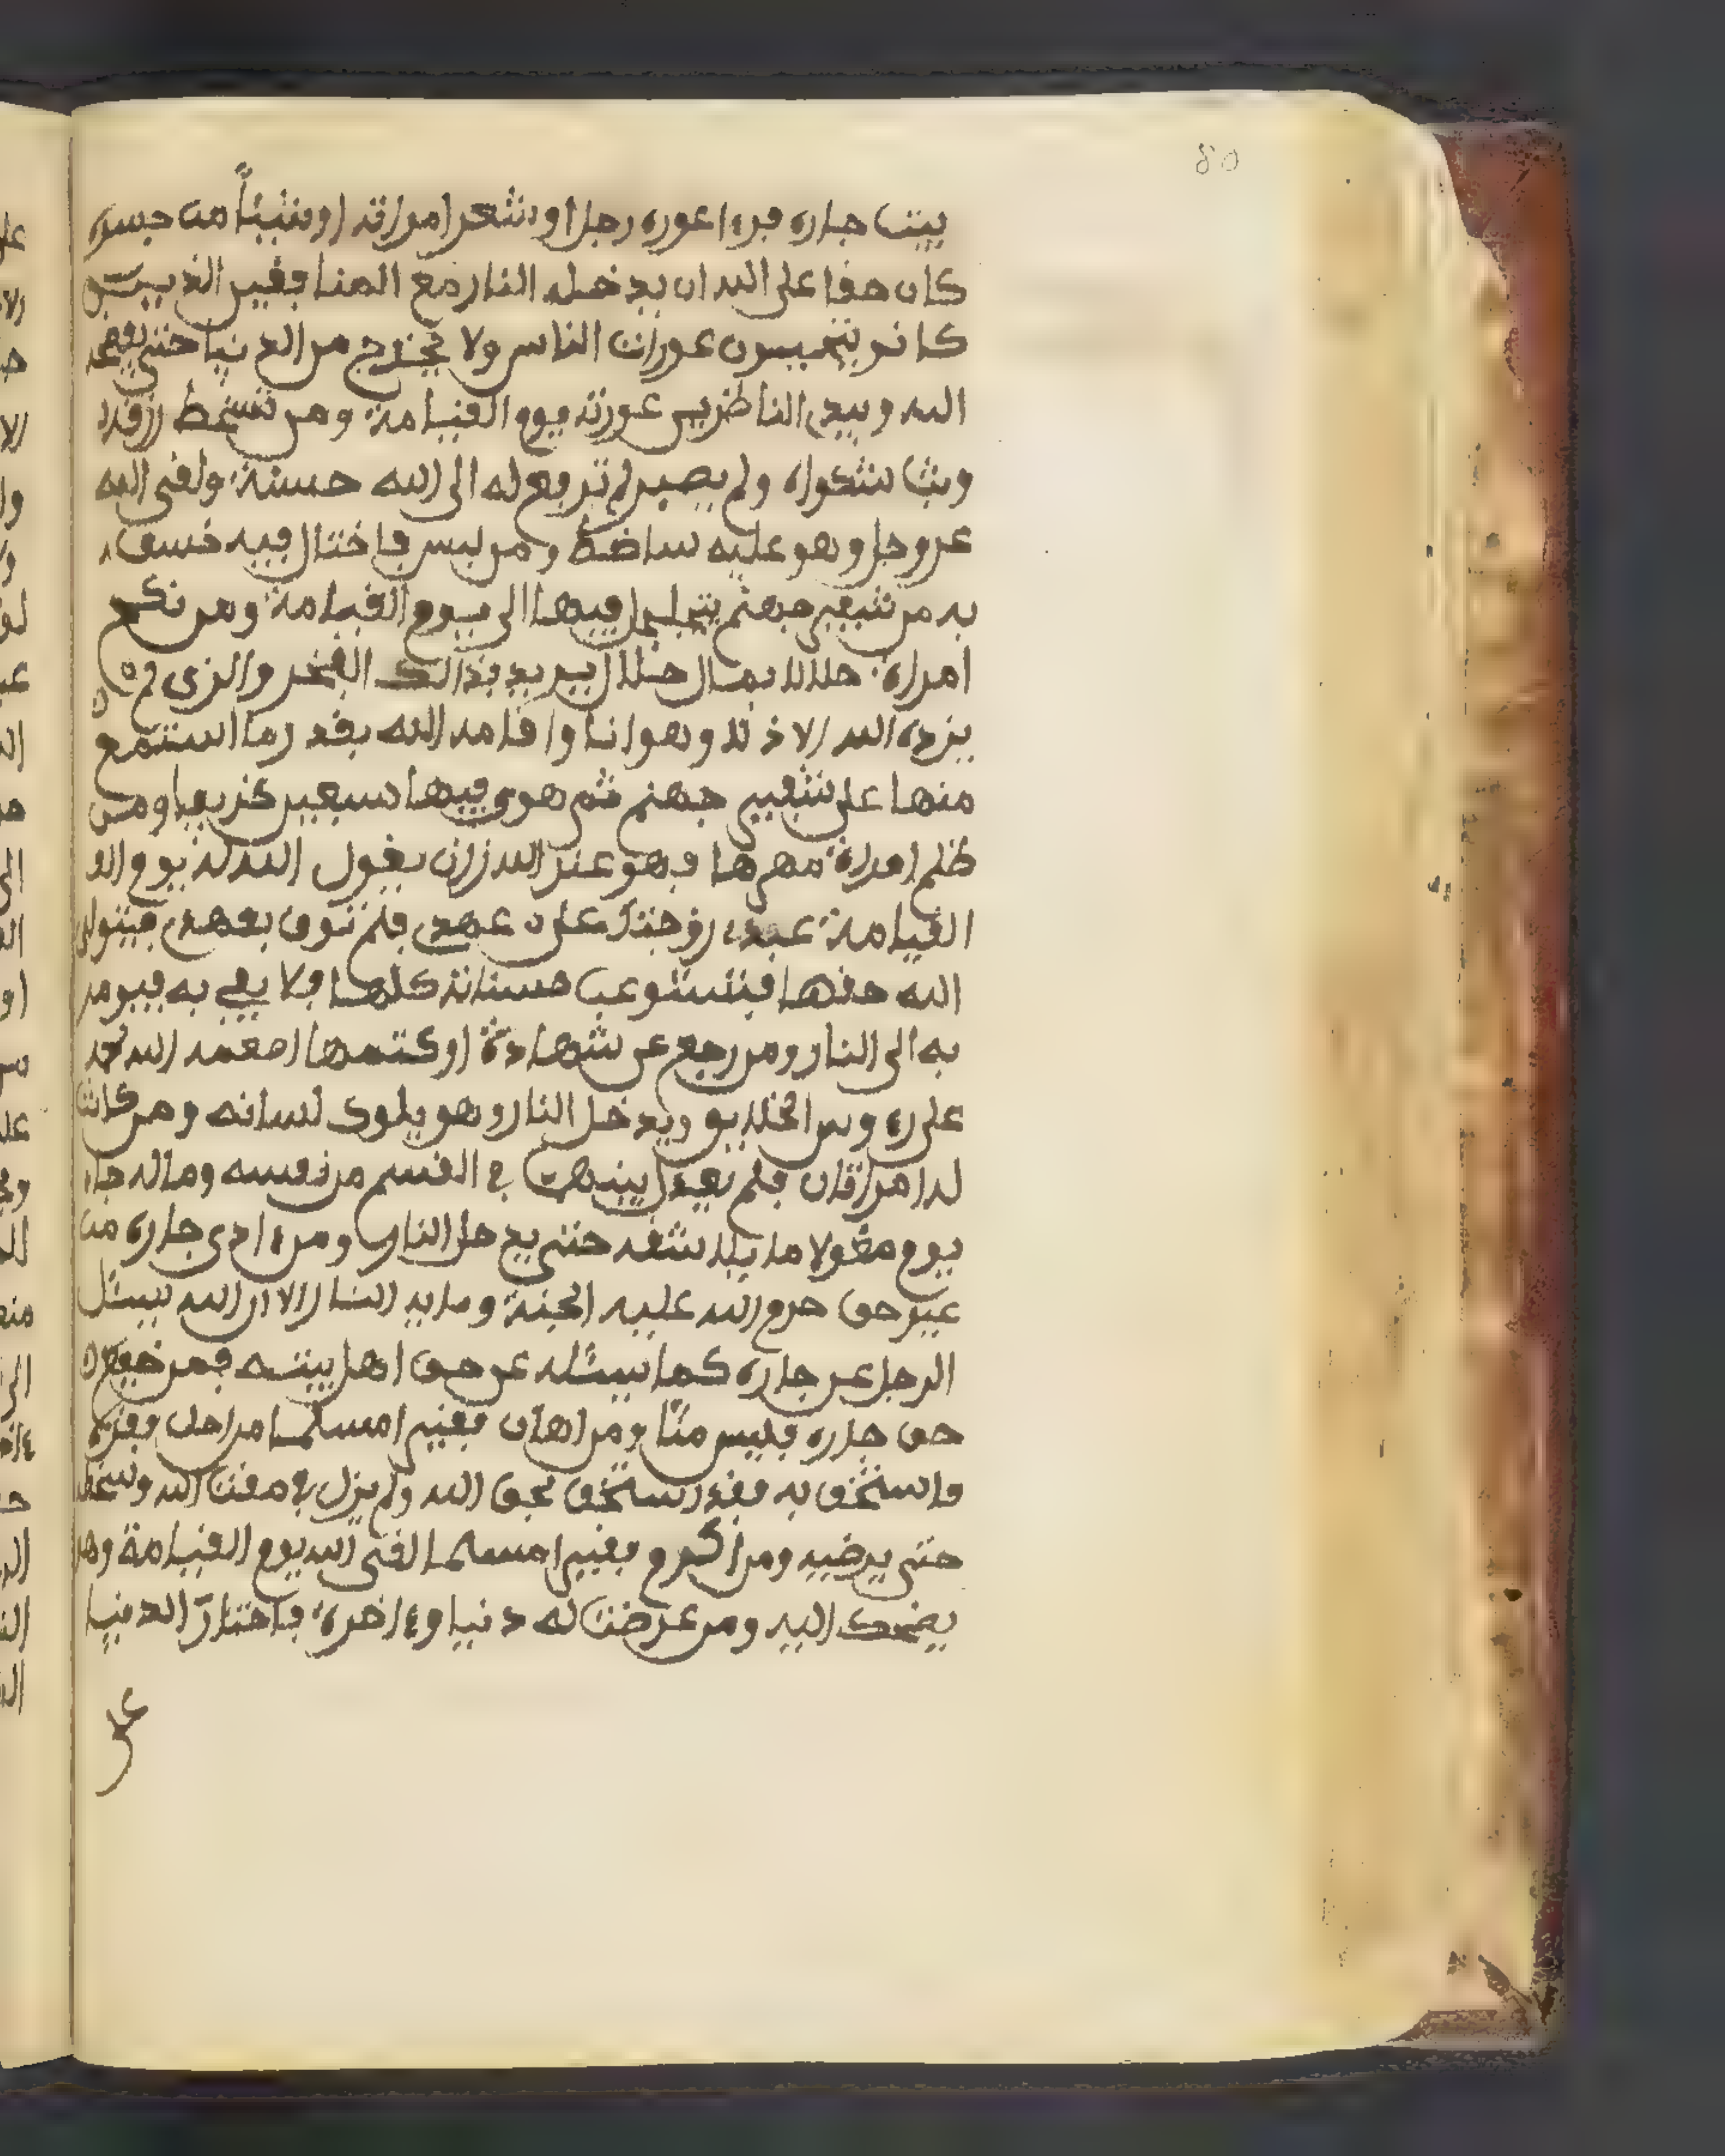 80
بيت جاره فرءا عوره رجل او شعر امراته او شيئاً من جسده
كان حقا على الله ان يدخله النار مع المنافقين الذين
كانو يتجسسون عورات الناس ولا يخرج من الدنيا حتى يفضحه
الله ويبدي الناظرين عورته يوم القيامة ومن تسخط رزقه
وبث شكواه ولم يصبر لم ترفع له الى الله حسنة ولقى الله
عز وجل وهو عليه ساخط ومن لبس فاختال فيه خسف
به من شفير جهنم يتجلجل فيها الى يوم القيامة ومن نكح
امراة حلالا بمال حلال يريد بذالك الفخر والزي لم
يزده الله الا ذلا وهوانا واقامه الله بقدر ما استمتع
منها على شفير جهنم ثم هوى فيها سبعين خريفا ومن
ظلم امراة مهرها فهو عند الله زان يقول الله له يوم الق
القيامة عبدي زوجتك على عهدي فلم توف بعهدي فيتولى
الله حقها فتستوعب حسناته كلها فلا يفي به فيومر
به الى النار ومن رجع عن شهادة او كتمها اطعمه الله لحمه
على رءوس الخلايق ويدخل النار وهو يلوك لسانه ومن كانت
له امراتان فلم يعدل بينهما في القسم من نفسه وماله جاء
يوم مغلولا مايلا شقه حتى يدخل النار ومن ءاذى جاره من
غير حق حرم الله عليه الجنة وماويه النار الا ان الله يسئل
الرجل عن جاره كما يسئله عن حق اهل بيته فمن ضيع
حق جاره فليس منّا ومن اهان فقيرا مسلما من اجل فقره
واستخف به فقد استخف بحق الله ولم يزل في مقت الله وسخطه
حتى يرضيه ومن اكرم فقيرا مسلما لقى الله يوم القيامة وهو
يضحك اليه ومن عرضت له دنيا وءاخرة فاختار الدنيا
على